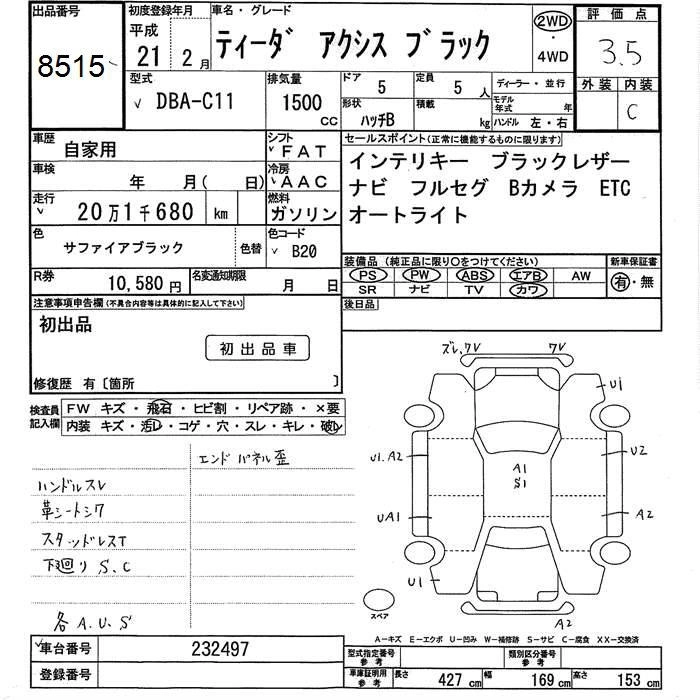 出品番号
8515
初度登録年月
平成
21 2月
車名・グレード
ティーダ アクシス ブラック
2WD
・
4WD
評価点
3.5
外装 内装
C
型式
DBA-C11
排気量
1500
CC
ドア
5
定員
5 人
形状
ハッチB
積載
kg
ディーラー・並行
モデル年式 年
ハンドル 左・右
車歴
自家用
シフト
FAT
車検
年 月( 日)
冷房
AAC
走行
20万1千680 km
燃料
ガソリン
色
サファイアブラック
色替
色コード
B20
R券
10,580円
名変通知期限
月 日
セールスポイント(正常に機能するものに限ります)
インテリキー ブラックレザー
ナビ フルセグ Bカメラ ETC
オートライト
装備品(純正品に限り○をつけてください)
PS PW ABS エアB AW
SR ナビ TV カワ
新車保証書
有・無
後日品
注意事項申告欄(不具合内容等は具体的に記入して下さい)
初出品
初出品車
修復歴 有〔箇所 〕
検査員
記入欄
FW キズ・飛石・ヒビ割・リペア跡・×要
内装 キズ・汚レ・コゲ・穴・スレ・キレ・破レ
エンドパネル歪
ハンドルスレ
革シートシワ
スタッドレスT
下廻りS、C
各A.U.S
ズレ,ワV
ワV
U1
U1.A2
U2
A1
S1
UA1
A2
U1
A2
スペア
A-キズ E-エクボ U-凹み W-補修跡 S-サビ C-腐食 XX-交換済
車台番号
232497
登録番号
型式指定番号
参考
類別区分番号
参考
車庫証明用
参考
長さ 427 cm 幅 169 cm 高さ 153 cm